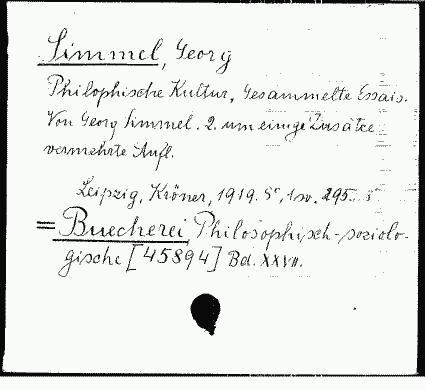 Simmel, Georg
Philophische Kultur, Gesammelte Essais.
Von Georg Simmel. 2. um einige Zusätze
vermehrte Aufl.
Leipzig, Kröner, 1919. 8°, 295
= Buecherei, Philosophisch-soziolo-
gische [45894] Bd. XXVII.